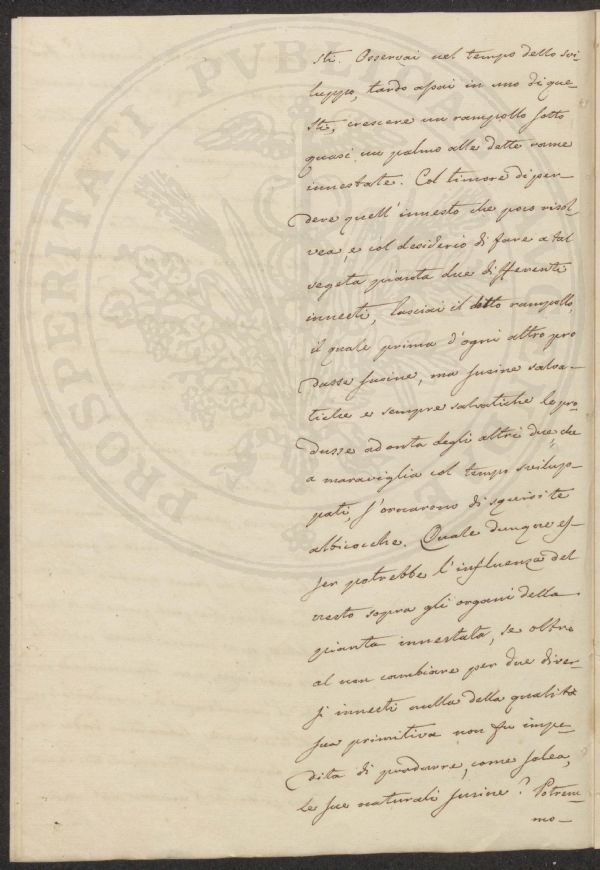 sti. Osservai nel tempo dello svi-
luppo, tardo assai in uno di que-
sti, crescere un rampollo sotto
quasi un palmo alle dette rame
innestate. Col timore di per-
dere quell'innesto che poco risol-
vea, e col desiderio di fare a tal
segeta pianta due differenti
innesti, lasciai il detto rampollo,
il quale prima d'ogni altro pro
dusse susine, ma susine salva-
tiche e sempre salvatiche le pro-
dusse ad onta degli altri due, che
a maraviglia col tempo svilup-
pati, s'onorarono di squisite
albicocche. Quale dunque es-
ser potrebbe l'influenza del
nesto sopra gli organi della
pianta innestata, se oltre
al non cambiare per due diver-
si innesti nulla della qualità
sua primitiva non fu impe-
dita di produrre, come solea,
le sue naturali susine? Potrem-
mo-
PROSPERITATI PVBLICAE